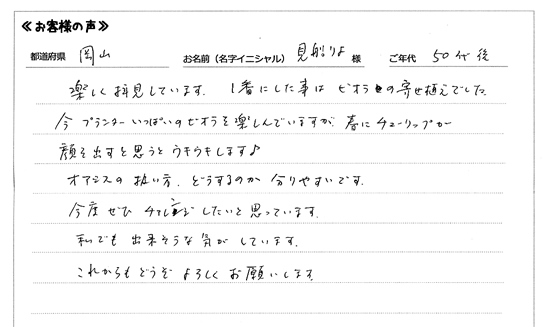 ≪お客様の声≫
都道府県 岡山 お名前（名字イニシャル） 見船りよ 様 ご年代 50代後
楽しく拝見しています。 1番にした事は ビオラの寄せ植えでした
今 プランターいっぱいのビオラを楽しんでいますが、春にチューリップが
顔を出すと思うと ウキウキします♪
オアシスの扱い方、どうするのか 分りやすいです。
今度ぜひ したいと思っています。
私でも出来そうな気がしています。
これからもどうぞ よろしくお願いします。